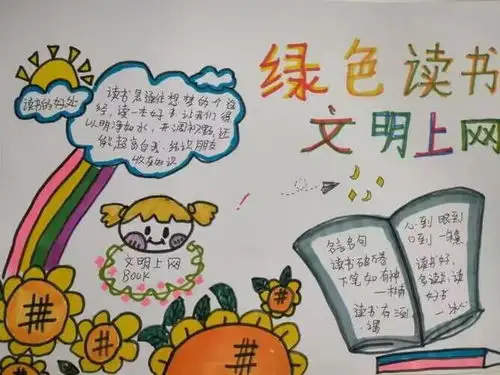 绿色读书
文明上网
读书的好处
读书是通往梦想的个途
经,读一本好书,让我们得
以明净如水,开阔视野,还
能超高自我、结识朋友
收存知识
文明上网
BOOK
名言名句
读书破万卷
下笔如有神
读书有三
心到 眼到
口到
读书好,
多读书,读
好书